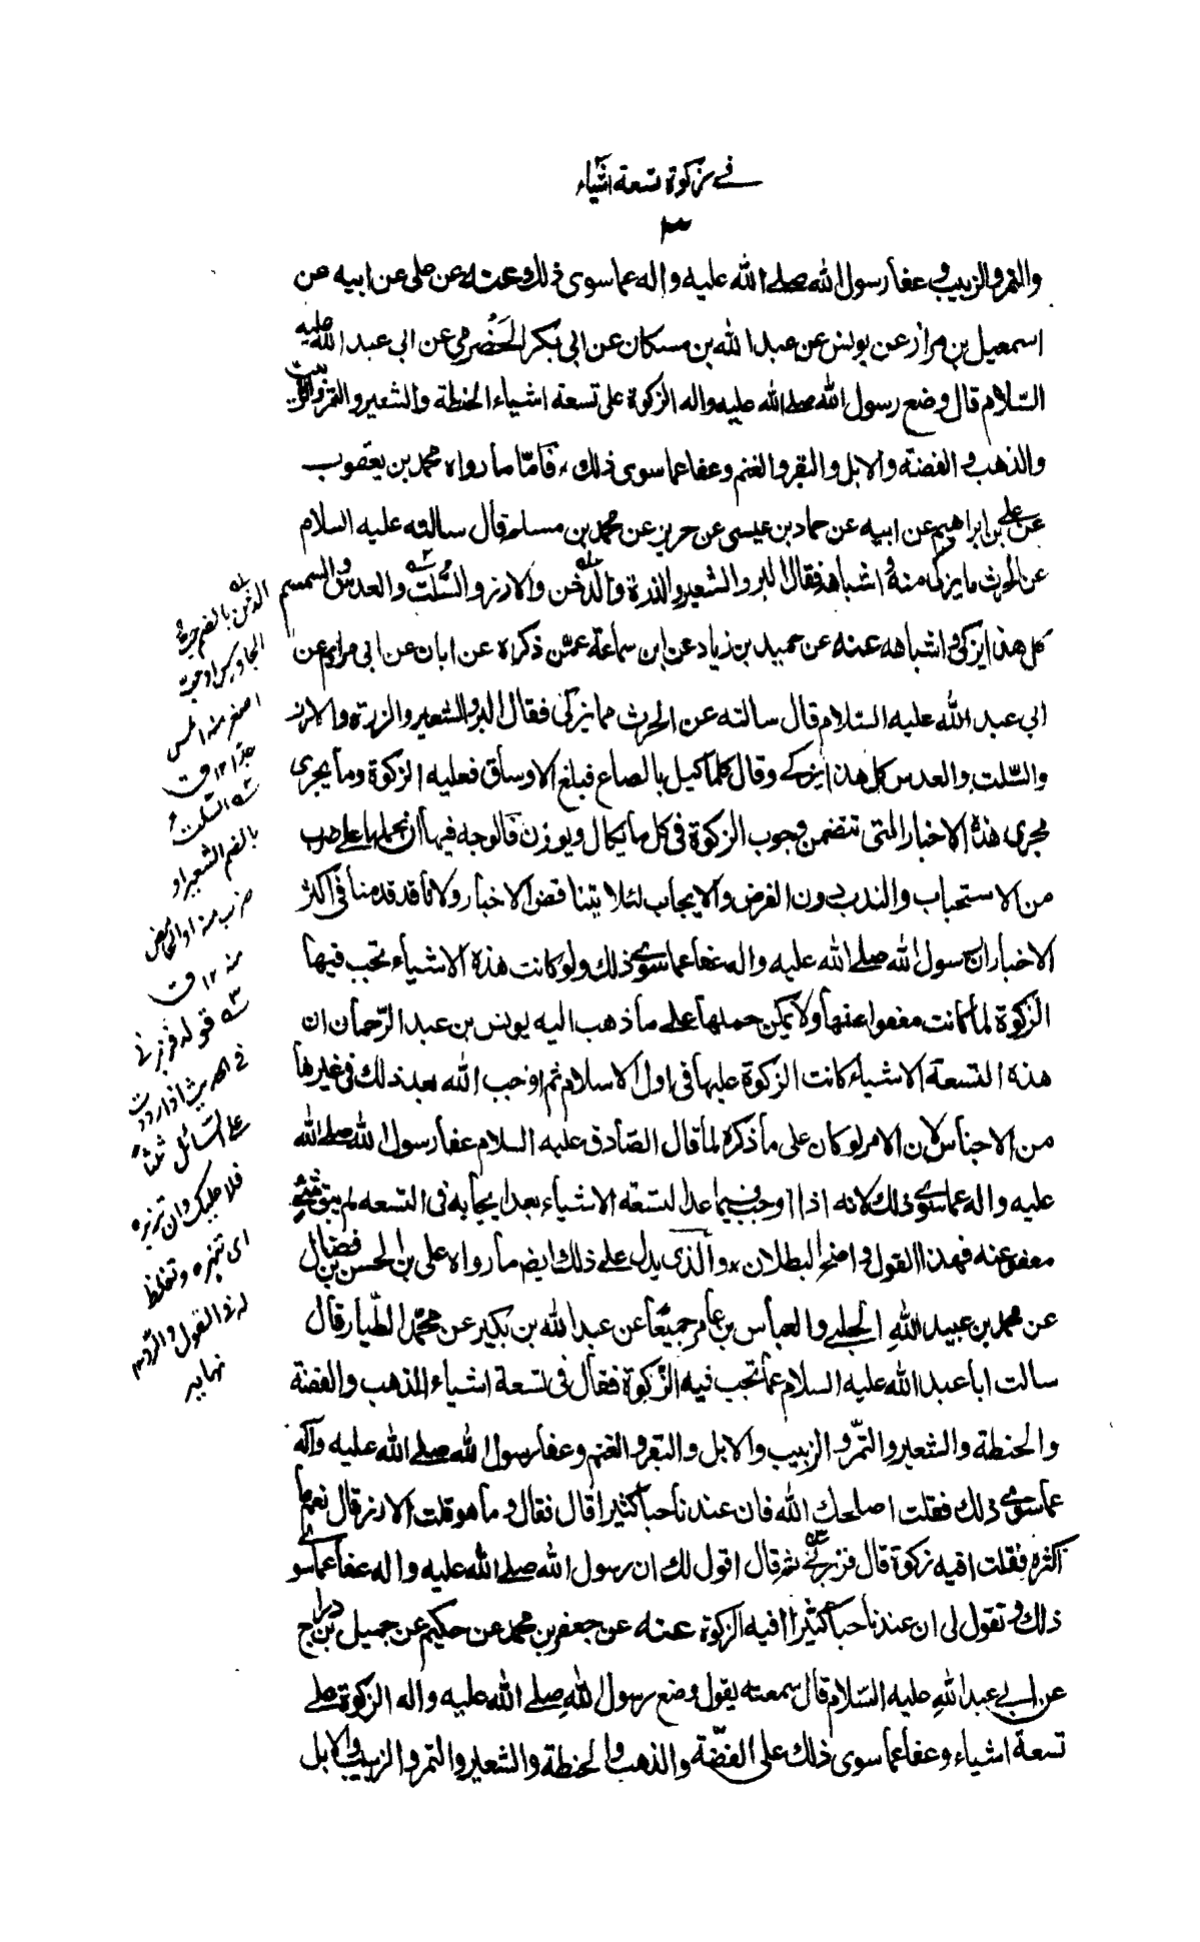 في زكوة تسعة اشياء
٣
والتمر والزبيب وعفا رسول الله صلى الله عليه واله عما سوى ذلك وعنه عن على عن ابيه عن
اسمعيل بن مرار عن يونس عن عبد الله بن مسكان عن ابى بكر الحَضْرمي عن ابى عبد الله عليه
السّلام قال وضع رسول الله صلى الله عليه واله الزكوة على تسعة اشياء الحنطة والشعير والتمر والزبيب
والذهب والفضة والابل والبقر والغنم وعفا عما سوى ذلك، فَامّا ما رواه محمد بن يعقوب
عن على بن ابراهيم عن ابيه عن حماد بن عيسى عن حريز عن محمد بن مسلم قال سالته عليه السلام
عن الحرث ما يزكى منه واشباهه فقال البر والشعير والذرة والدُّخن والارز والسُّلت والعدس والسمسم
كل هذا يزكى واشباهه عنه عن حميد بن زياد عن ابن سماعة عمّن ذكره عن ابان عن ابى مريم عن
ابى عبد الله عليه السّلام قال سالته عن الحرث مما يزكى فقال البر والشعير والزرة والارز
والسّلت والعدس كل هذا يزكى وقال كلما كيل بالصاع فبلغ الاوساق فعليه الزكوة وما يجرى
مجرى هذه الاخبار التى تتضمن وجوب الزكوة فى كل ما يكال ويوزن فالوجه فيها ان نحملها على ضرب
من الاستحباب والندب دون الفرض والايجاب لئلا يتناقض الاخبار ولانا قد قدمنا فى اكثر
الاخبار ان رسول الله صلى الله عليه واله عفا عما سوى ذلك ولو كانت هذه الاشياء تجب فيها
الزكوة لما كانت معفوا عنها ولا يمكن حملها على ما ذهب اليه يونس بن عبد الرّحمان ان
هذه التسعة الاشياء كانت الزكوة عليها فى اول الاسلام ثم اوجب الله بعد ذلك فى غيرها
من الاجناس لان الامر لو كان على ما ذكره لما قال الصّادق عليه السلام عفا رسول الله صلى الله
عليه واله عما سوى ذلك لانه اذا اوجب فيما عدا التسعة الاشياء بعد ايجابه فى التسعه لم يبق شئ
معفو عنه فهذا القول واضح البطلان، والذى يدل على ذلك ايضا ما رواه على بن الحسن بن فضال
عن محمد بن عبيد الله الحلبى والعباس بن عامر جميعًا عن عبد الله بن بكير عن محمّد الطّيار قال
سالت ابا عبد الله عليه السلام عما تجب فيه الزّكوة فقال فى تسعة اشياء الذهب والفضة
والحنطة والشعير والتمّر والزبيب والابل والبقر والغنم وعفا رسول الله صلى الله عليه وآله
عما سوى ذلك فقلت اصلحك الله فان عندنا حبا كثيرا قال فقال وما هو قلت الارز قال نعم ما
اكثره فقلت افيه زكوة قال فزبرنى ثم قال اقول لك ان رسول الله صلى الله عليه واله عفا عما سوى
ذلك وتقول لى ان عندنا حبا كثيرا افيه الزكوة عنه عن جعفر بن محمد عن حكيم عن جميل بن دراج
عن ابى عبد الله عليه السّلام قال سمعته يقول وضع رسول الله صلى الله عليه واله الزكوة على
تسعة اشياء وعفا عما سوى ذلك على الفضّة والذهب والحنطة والشعير والتمر والزبيب والابل
الدخن بالضم حبة
الجاورس او حبة
اصغر منه املس
جدّا ١٢ ق
السّلت
بالضم الشعير او
ضرب منه او الحامض
منه ١٢ ق
قوله فزبرنى
فى الحديث اذا رددت
على السّائل ثلثاً
فلا عليك ان تزبره
اى تنهره وتغلظ
له فى القول والرّد ١٢
نهايه